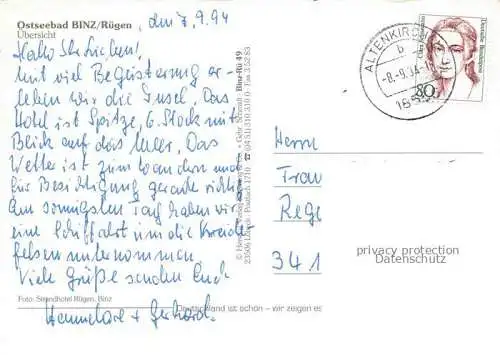 Ostseebad BINZ/Rügen
Übersicht
den 7.9.94
Hallo Ihr Lieben!
Mit viel Begeisterung er-
leben wir die Insel. Das
Hotel ist Spitze, 6. Stock mit
Blick auf das Meer. Das
Wetter ist zum wandern und
für Besichtigung gerade richtig
Am sonnigsten Tag haben wir
eine Schiffahrt um die Kreide-
felsen unternommen
Viele Grüße senden Euch
Hannelore + Gerhard.
Foto: Strandhotel Rügen, Binz
Deutschland ist schön – wir zeigen es
Binz-Rü 49
ALTENKIRCHEN
b
-8.-9.94
Deutsche Bundespost
80
Herrn
Frau
Rege
341
privacy protection
Datenschutz